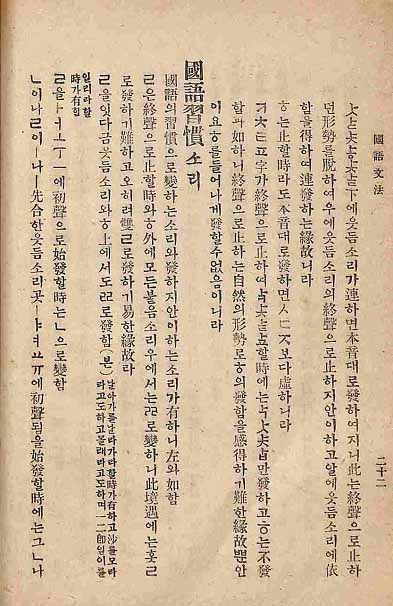 國語文法
二十二
下에웃듬소리가連하면本音대로發하여지니此는終聲으로止하
던形勢를脫하여우에웃듬소리의終聲으로止하지안이하고알에웃듬소리에依
함을得하여連發하는緣故니라
ㅎ는止할時라도本音대로發하면ㅅㄷㅈ보다虛하니라
字가終聲으로止하여 할時에는 만發하고ㅎ는不發
함과如하니終聲으로止하는自然의形勢로ㅎ의發함을感得하기難한緣故뿐안
이요ㅎ를들어나게發할수없음이니라
國語習慣소리
國語의習慣으로變하는소리와發하지안이하는소리가有하니左와如함
ㄹ은終聲으로止할時와ㅎ外에모든붙음소리우에서는ᄙ로變하니此境遇에는홋ㄹ
로發하기難하고오히려雙ㄹ로發하기易한緣故라
ㄹ을잇다금웃듬소리와ㅎ上에서도ᄙ로發함(분)
날아가를날라가라할時가有하고沙를모라
라고도하고몰래라고도하며一二卽일이를
일리라할
時가有함
ㄹ을ㅏㅓㅗㅜㅡ에初聲으로始發할時는ㄴ으로變함
ㄴ이나ㄹ이나ㅣ先合한웃듬소리곳ㅑㅕㅛㅠ에初聲됨을始發할時에는그ㄴ나